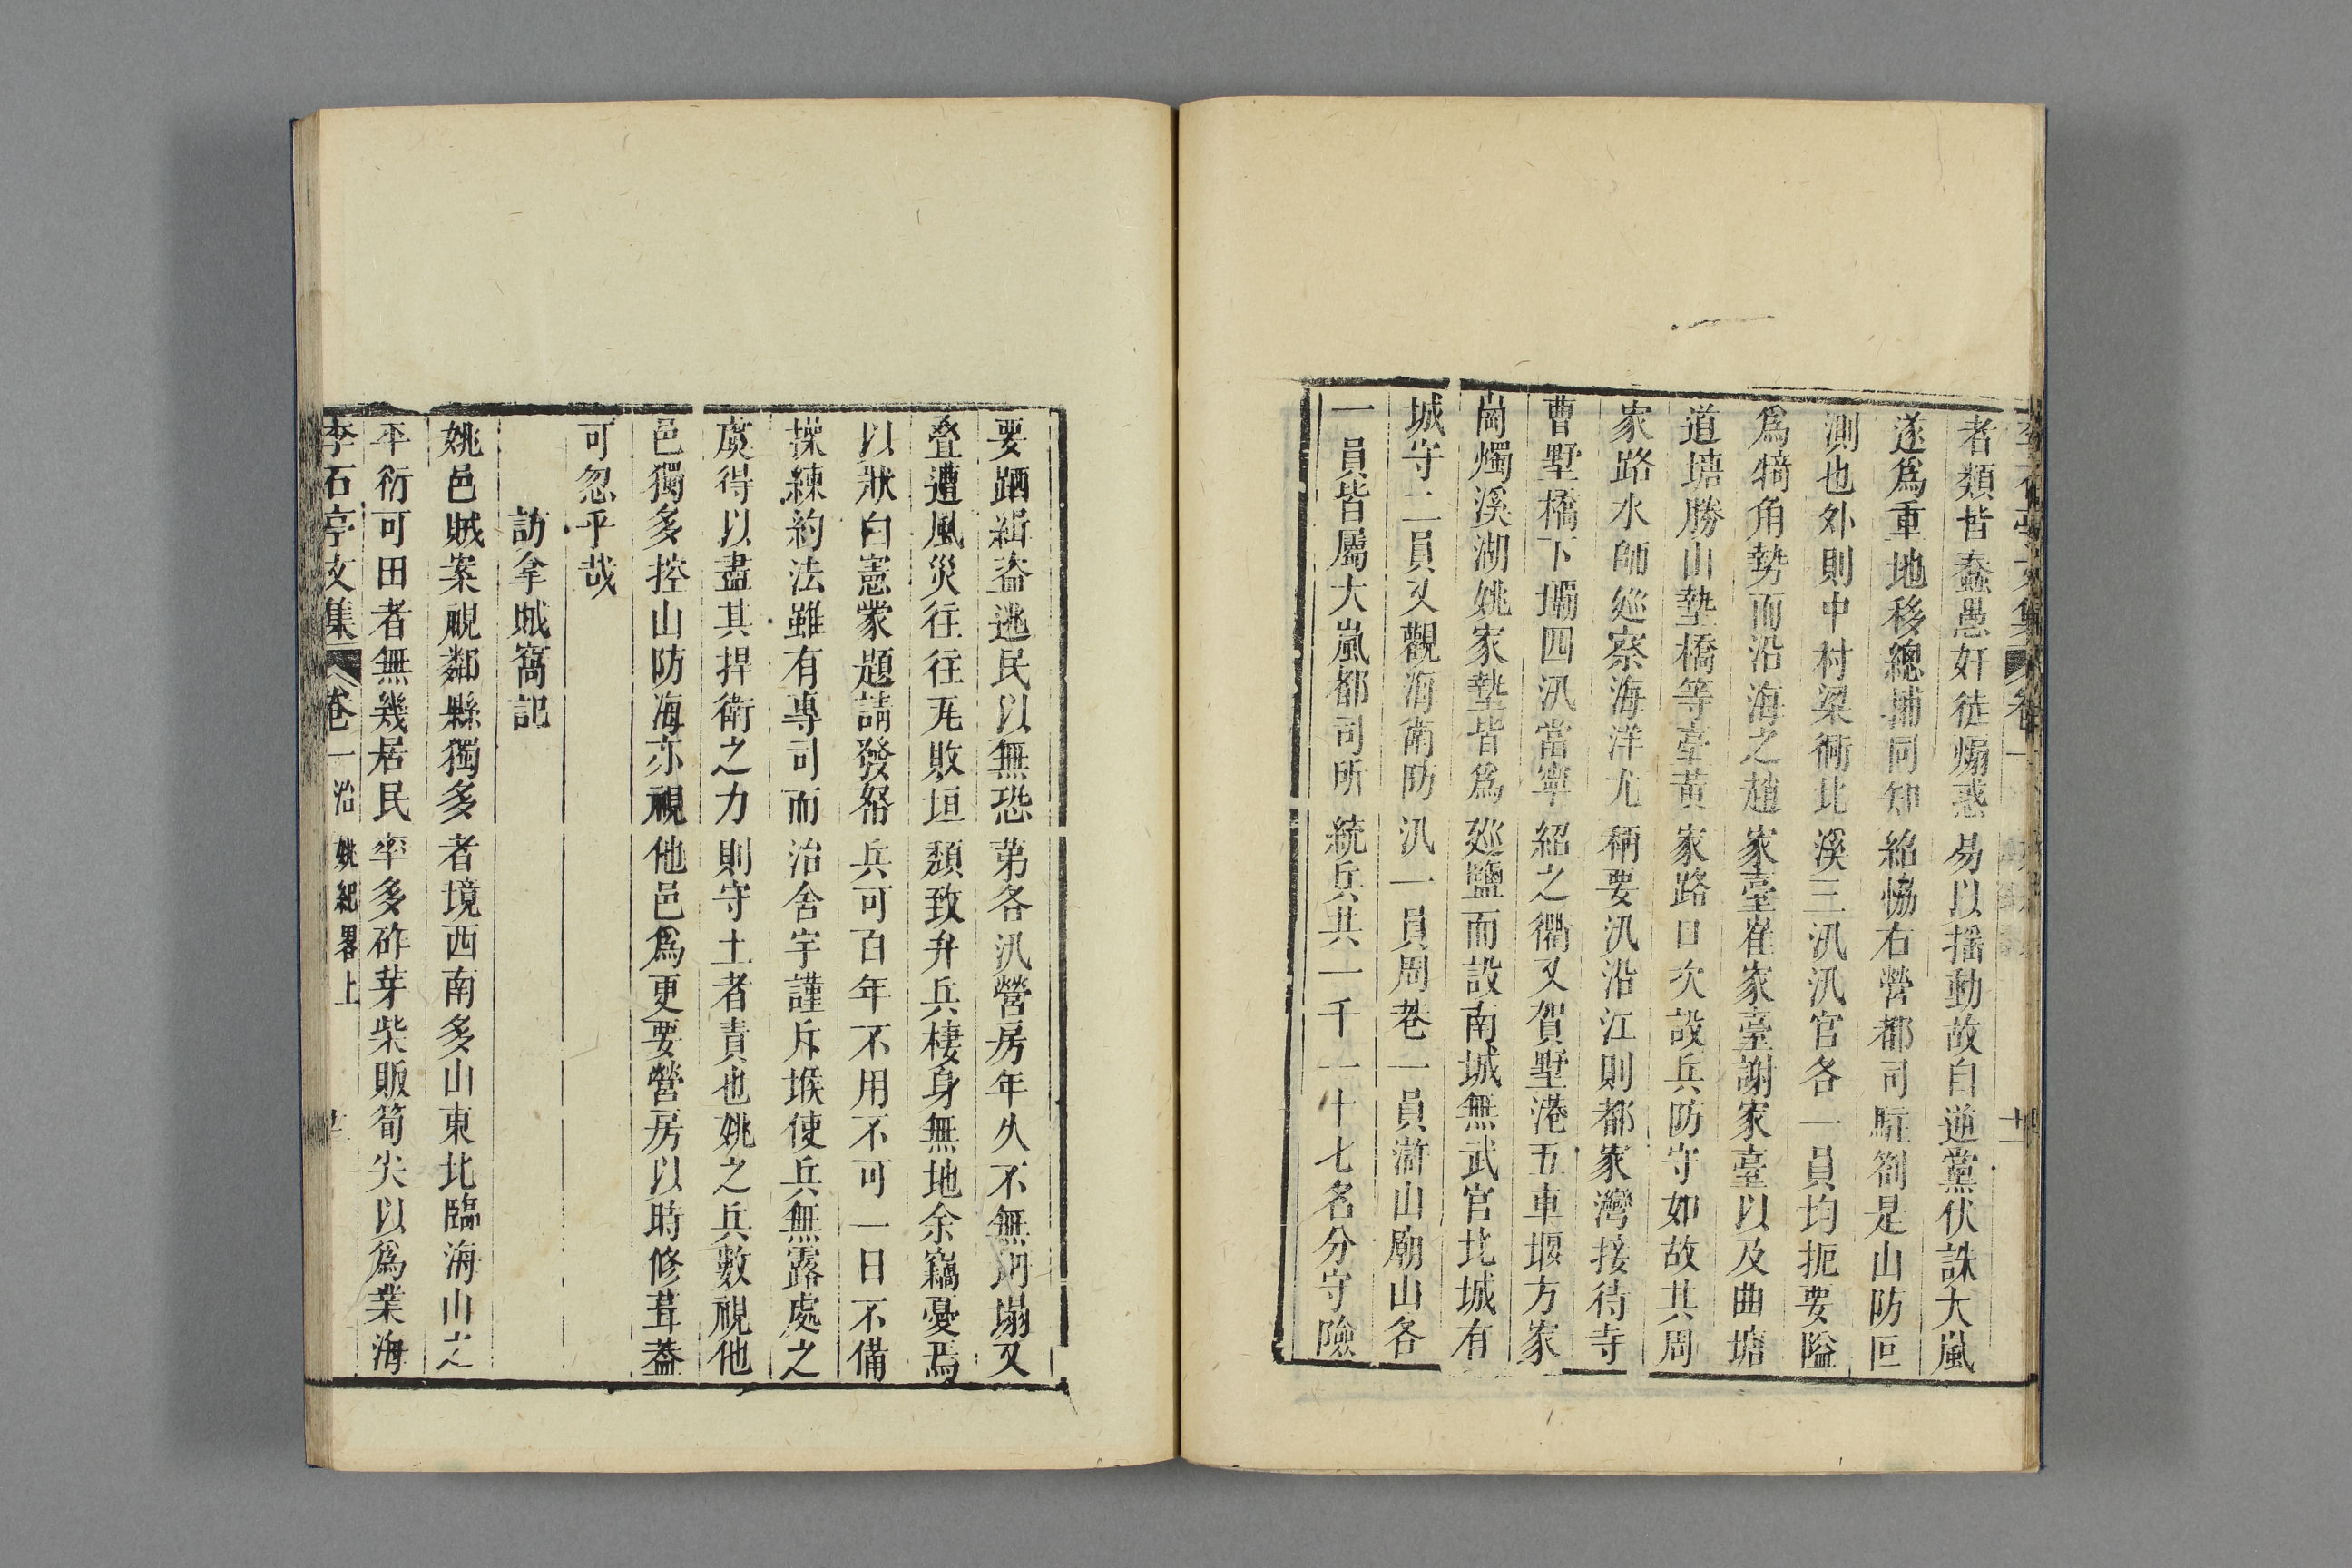 者類皆蠢愚奸徒煽惑易以搖動故自逆黨伏誅大嵐
遂爲重地移總捕同知紹協右營都司駐劄是山防叵
測也外則中村梁衕北溪三汛汛官各一員均扼要隘
爲犄角勢而沿海之趙家臺崔家臺謝家臺以及曲塘
道塘勝山墊橋等臺黃家路口次設兵防守如故其周
家路水師廵察海洋尤稱要汛沿江則都家灣接待寺
曹墅橋下壩四汛當寧紹之衢又賀墅港五車堰方家
崗燭溪湖姚家墊皆爲廵鹽而設南城無武官北城有
城守二員又觀海衛防汛一員周巷一員滸山廟山各
一員皆屬大嵐都司所統兵共一千一十七名分守險
要躧緝盜逃民以無恐第各汛營房年久不無坍塌又
叠遭風災往往瓦敗垣頹致弁兵棲身無地余竊憂焉
以狀白憲蒙題請發帑兵可百年不用不可一日不備
操練約法雖有專司而治舍宇謹斥堠使兵無露處之
虞得以盡其捍衛之力則守土者責也姚之兵數視他
邑獨多控山防海亦視他邑爲更要營房以時修葺葢
可忽乎哉
訪拿賊窩記
姚邑賊案視鄰縣獨多者境西南多山東北臨海山之
平衍可田者無幾居民率多砟芽柴販筍尖以爲業海
李石亭文集 卷一 治姚紀畧上